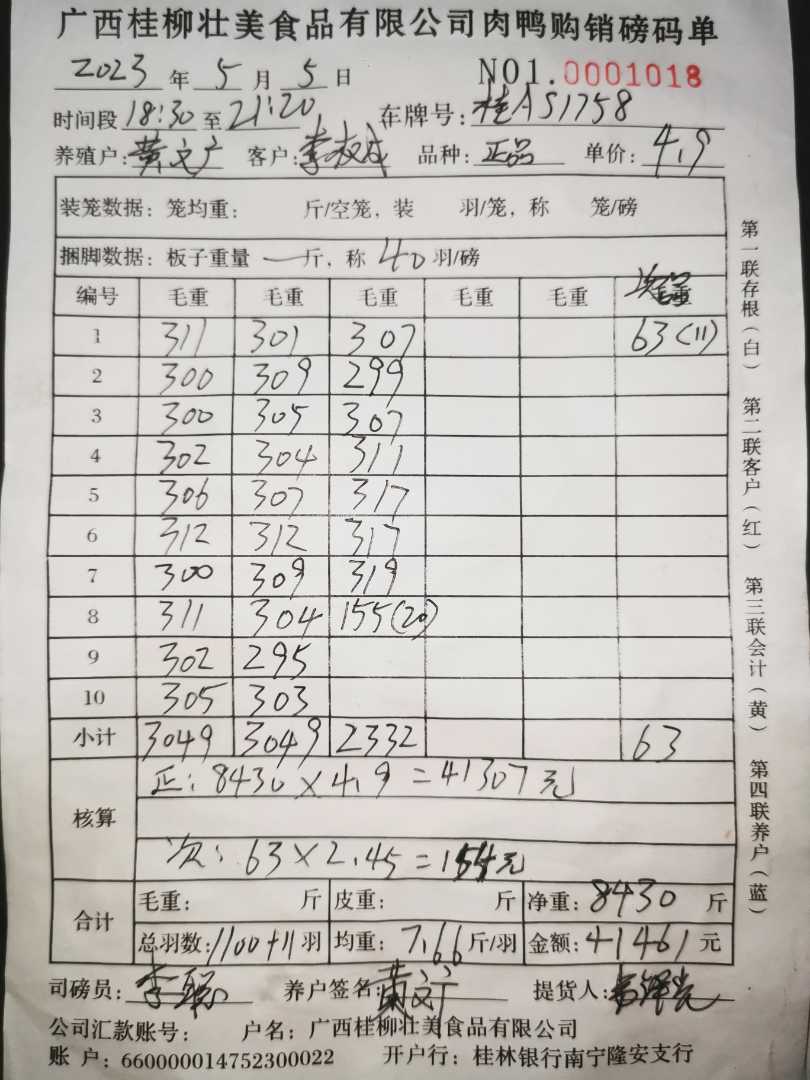 广西桂柳壮美食品有限公司肉鸭购销磅码单
2023 年 5 月 5 日 NO1.0001018
时间段 18:30 至 21:20 车牌号: 桂AS1758
养殖户: 黄文广 客户: 李权成 品种: 正品 单价: 4.9
装笼数据: 笼均重: 斤/空笼, 装 羽/笼, 称 笼/磅
捆脚数据: 板子重量 一 斤, 称 40 羽/磅
编号 毛重 毛重 毛重 毛重 毛重 次品
1 311 301 307 63(11)
2 300 309 299
3 300 305 307
4 302 304 311
5 306 307 317
6 312 312 317
7 300 309 319
8 311 304 155(20)
9 302 295
10 305 303
小计 3049 3049 2332 63
核算
正: 8430×4.9=41307元
次: 63×2.45=154元
合计
毛重: 斤 皮重: 斤 净重: 8430 斤
总羽数: 1100+11 羽 均重: 7.66 斤/羽 金额: 41461 元
司磅员: 李 养户签名: 黄文广 提货人:
公司汇款账号: 户名: 广西桂柳壮美食品有限公司
账 户: 660000014752300022 开户行: 桂林银行南宁隆安支行
第一联存根(白) 第二联客户(红) 第三联会计(黄) 第四联养户(蓝)